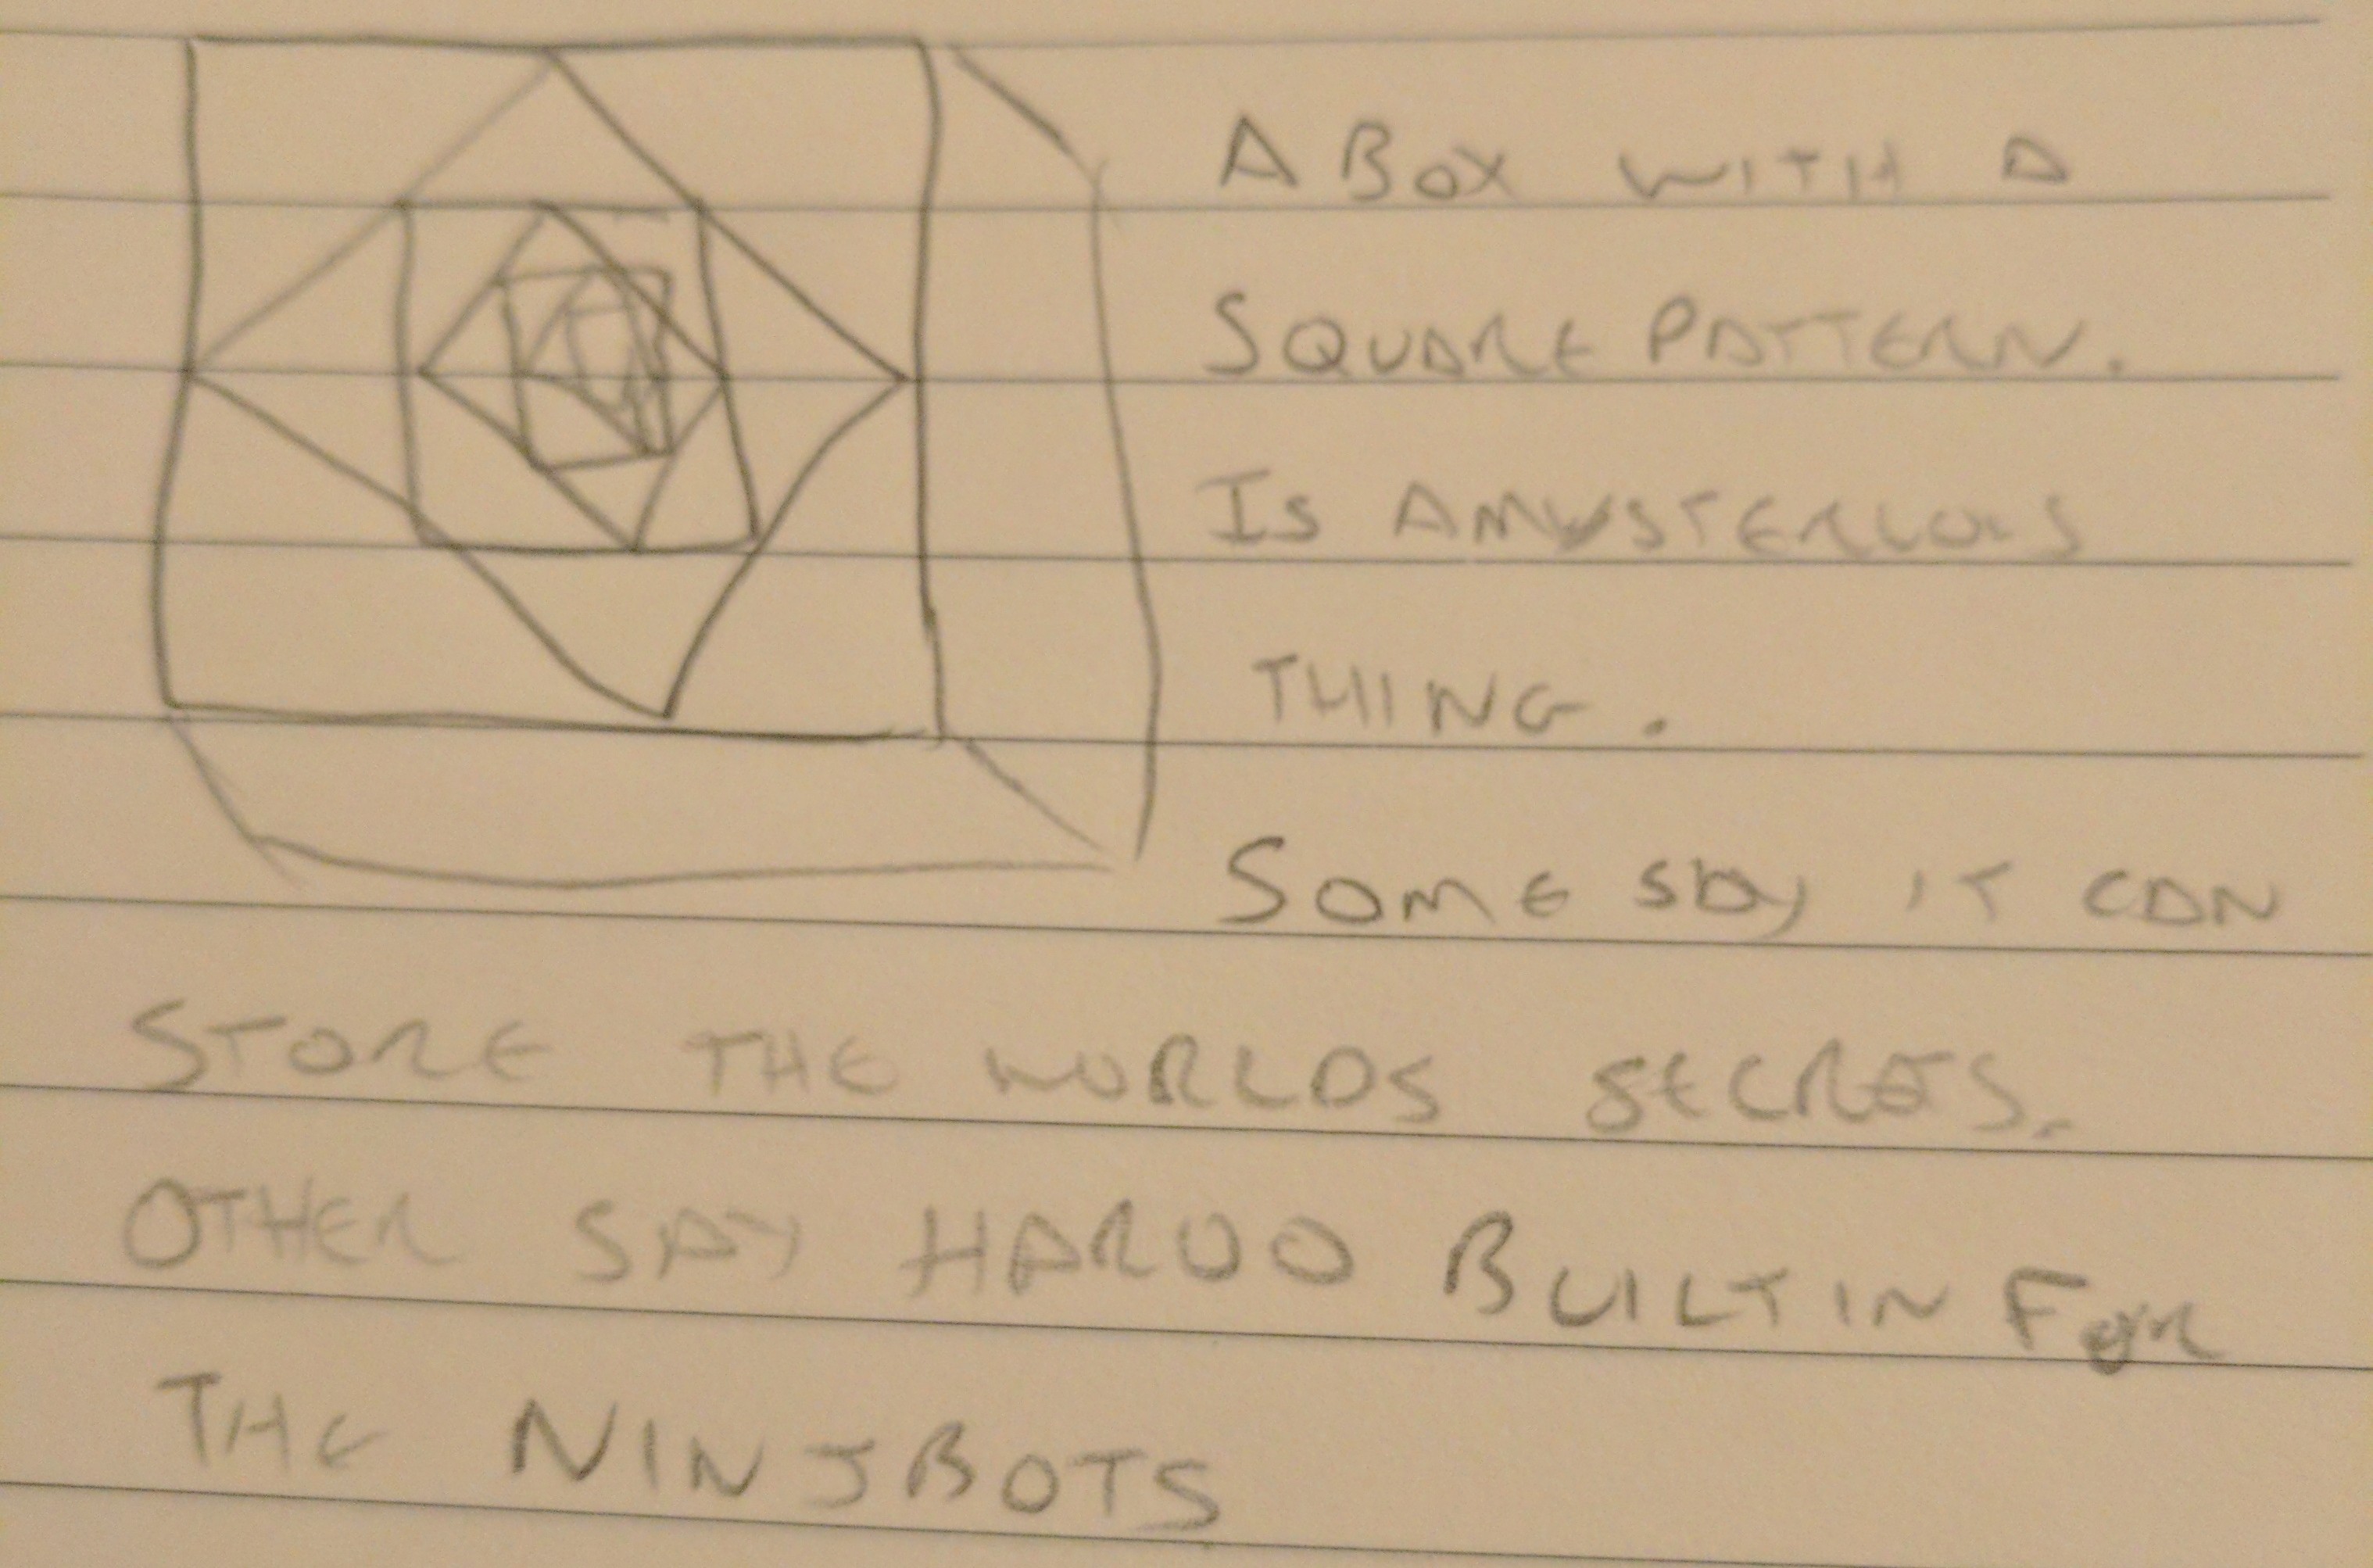 A BOX WITH A
SQUARE PATTERN.
IS A MYSTERIOUS
THING.
SOME SAY IT CAN
STORE THE WORLDS SECRETS.
OTHER SAY HARUO BUILT IN FOR
THE NINJBOTS